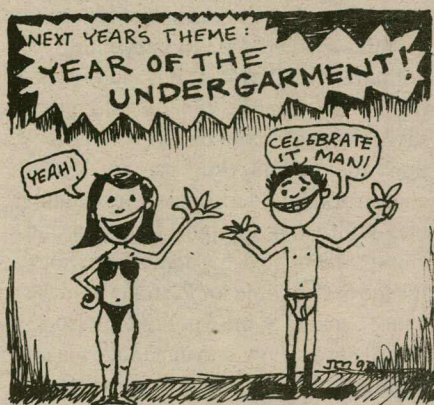 NEXT YEAR'S THEME:
YEAR OF THE
UNDERGARMENT!
YEAH!
CELEBRATE
IT, MAN!